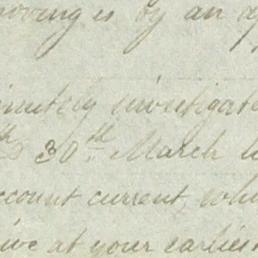 oving is by an a
inutely investigat
th 30th March l
ccount current, whi
ive at your earlies